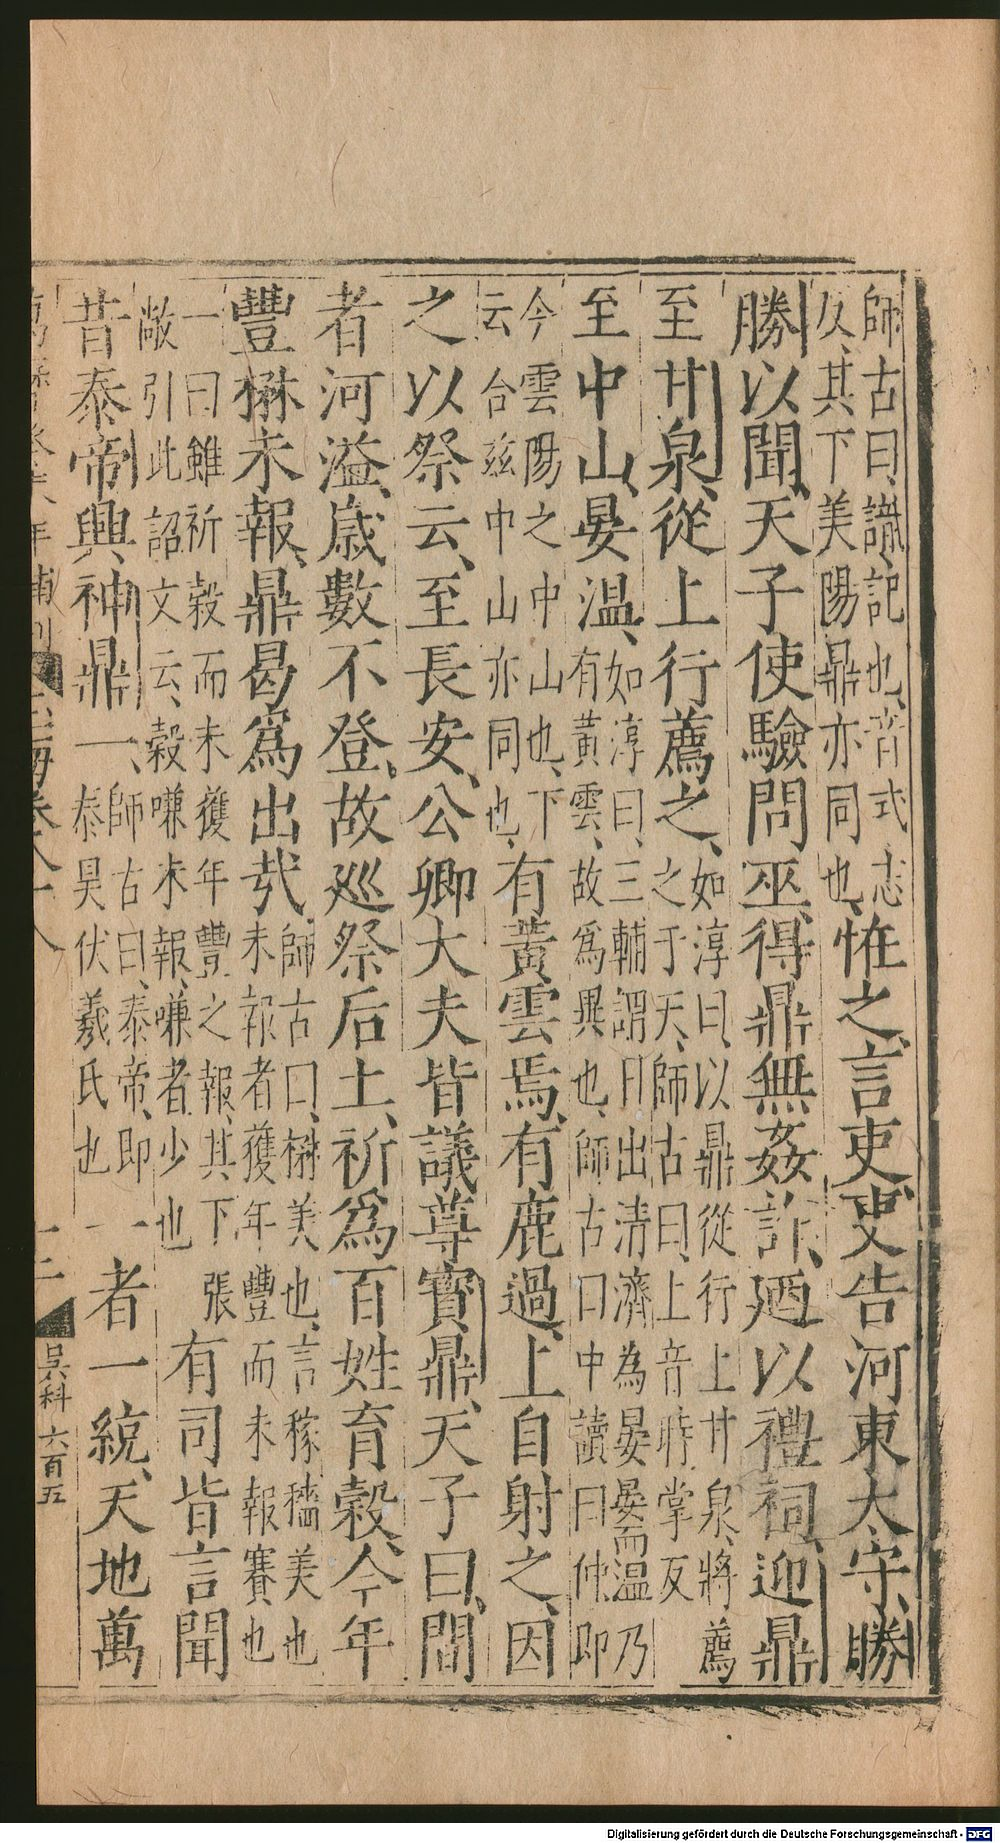 師古曰、識記也、音式志
反、其下美陽鼎亦同也、
恠之、言吏吏告河東太守、勝
勝以聞、天子使驗問巫、得鼎無姦詐、廼以禮祠、迎鼎
至甘泉、從上行薦之、
如淳曰、以鼎從行上甘泉、將薦
之于天、師古曰、上音時掌反
至中山、晏溫、
如淳曰、三輔謂日出清濟為晏晏而溫乃
有黃雲、故爲異也、師古曰中讀曰仲即
今雲陽之中山也、下
云合茲中山亦同也、
有黃雲焉、有鹿過、上自射之、因
之以祭云、至長安、公卿大夫皆議尊寶鼎、天子曰、間
者河溢、歲數不登、故巡祭后土、祈爲百姓育穀、今年
豐楙未報、鼎曷爲出哉、
師古曰、楙美也、言稼穡美也
未報者獲年豐而未報賽也
一曰雖祈穀而未獲年豐之報、其下張
敞引此詔文云、穀嗛未報、嗛者、少也
有司皆言聞
昔泰帝興神鼎一、
師古曰、泰帝、即
泰昊伏羲氏也
一者一統、天地萬
年補刊
十二
吳科 六百五
Digitalisierung gefördert durch die Deutsche Forschungsgemeinschaft - DFG